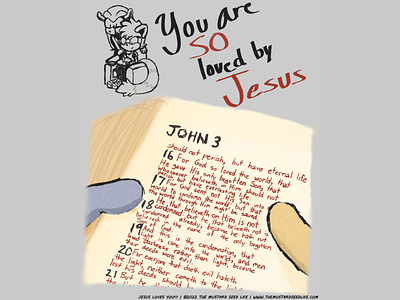 You are
SO
loved by
Jesus
JOHN 3
should not perish, but have eternal life
16 For God so loved the world, that
He gave His only begotten Son, that
whosoever believeth in Him should not
but have everlasting life
17 For God sent not His Son into the
world to condemn the world, but that
the world through Him might be saved
18 He that believeth on Him is not
condemned, but he that believeth not is
condemned already, because he hath not
name of the only begotten
19
light is come into the condemnation, that
darkness rather than light, and men
deeds were evil. because
20 For everyone that doeth evil hateth
the light, neither cometh to the light
lest his deeds should
21 But
JESUS LOVES YOU!!! | ©2022 THE MUSTARD SEED LIFE | WWW.THEMUSTARDSEEDLIFE.COM